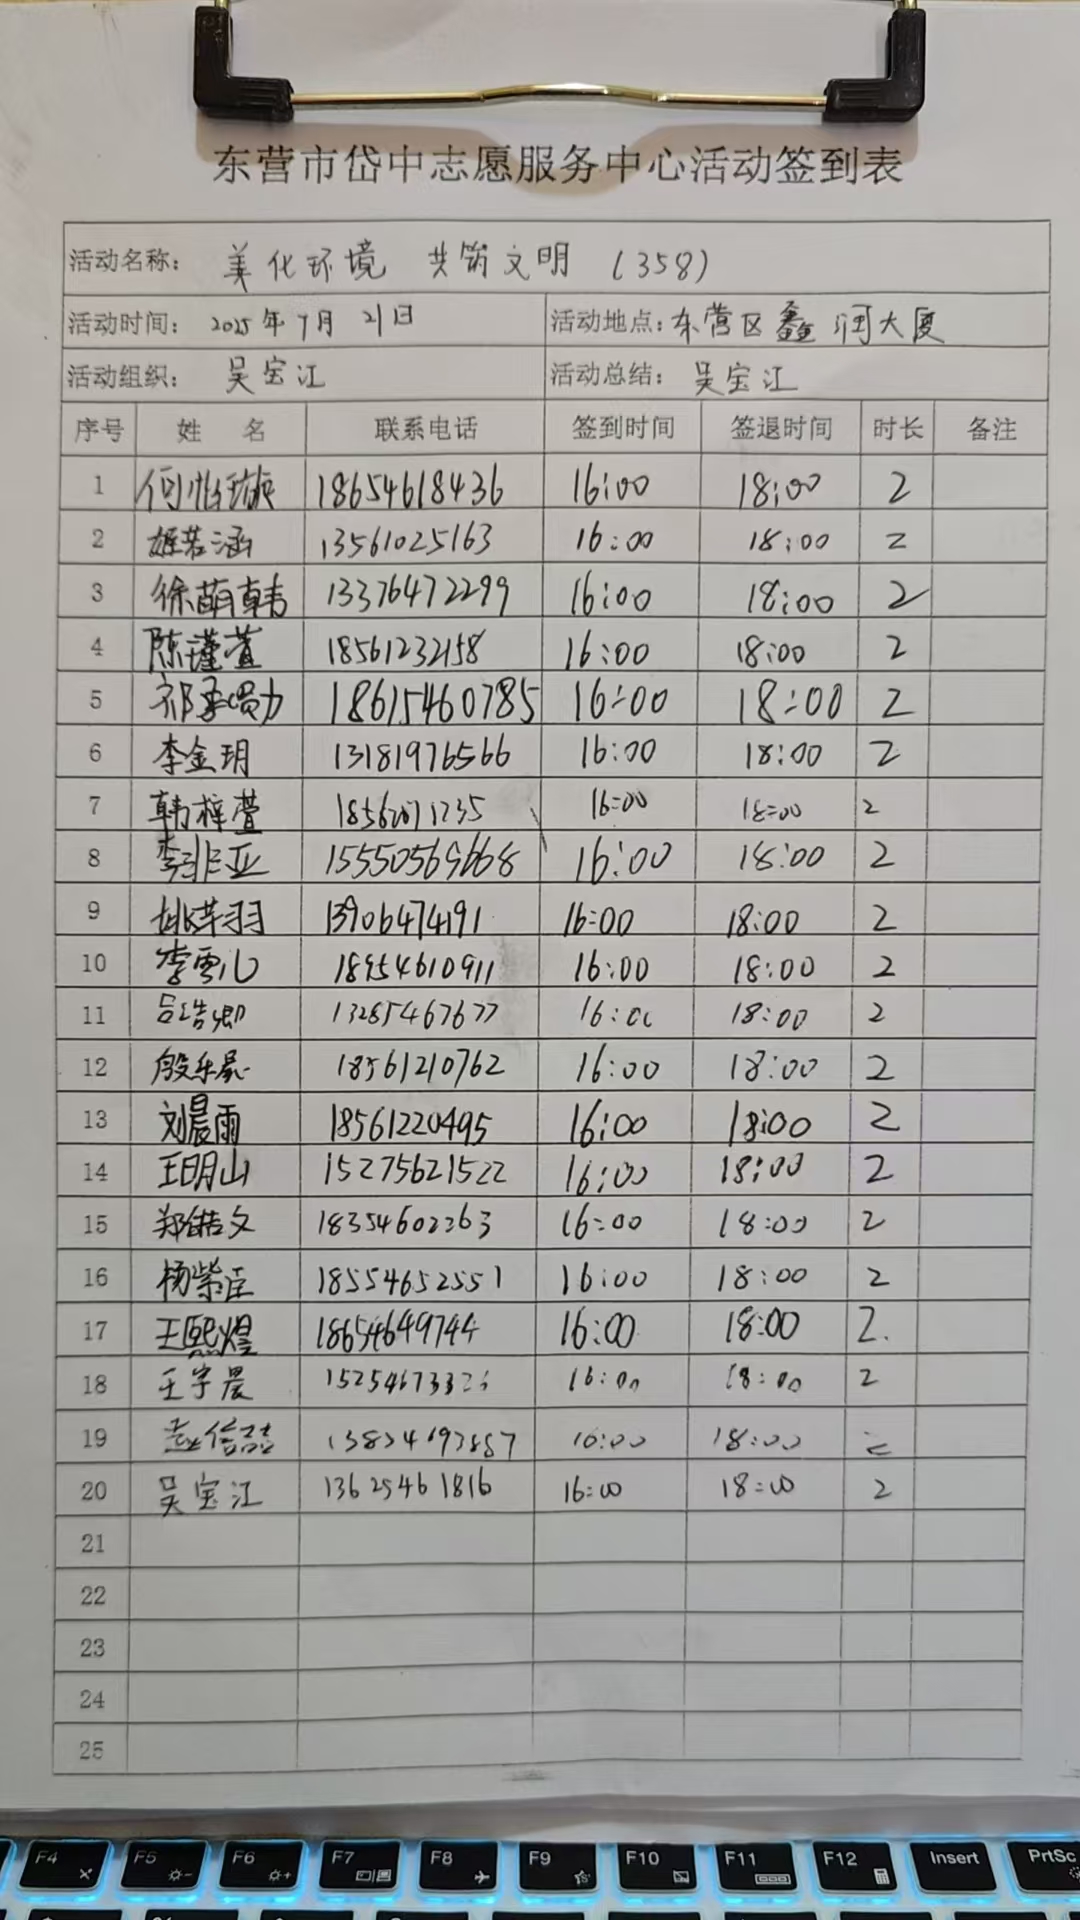 东营市岱中志愿服务中心活动签到表
活动名称： 美化环境 共筑文明 (358)
活动时间： 2025年7月21日 活动地点：东营区鑫润大厦
活动组织： 吴宝江 活动总结： 吴宝江
序号 姓 名 联系电话 签到时间 签退时间 时长 备注
1 何怡璇 18654618436 16:00 18:00 2
2 姬若涵 13561025163 16:00 18:00 2
3 徐萌韩 13376472299 16:00 18:00 2
4 陈瑾萱 18561232158 16:00 18:00 2
5 18615460785 16:00 18:00 2
6 李金玥 13181976566 16:00 18:00 2
7 韩梓萱 16:00 18:00 2
8 李非亚 15550569668 16:00 18:00 2
9 姚芊羽 13906474191 16:00 18:00 2
10 李雪儿 18954610911 16:00 18:00 2
11 吕浩卿 13285467677 16:00 18:00 2
12 殷乐 18561210762 16:00 18:00 2
13 刘晨雨 18561220495 16:00 18:00 2
14 王明山 15275621522 16:00 18:00 2
15 郑皓文 18354602263 16:00 18:00 2
16 杨紫 18554652551 16:00 18:00 2
17 王熙煜 18654649744 16:00 18:00 2.
18 王宇晨 16:00 18:00 2
19 赵信喆 16:00 18:00 2
20 吴宝江 13625461816 16:00 18:00 2
21
22
23
24
25
F4 F5 F6 F7 F8 F9 F10 F11 F12 Insert PrtSc